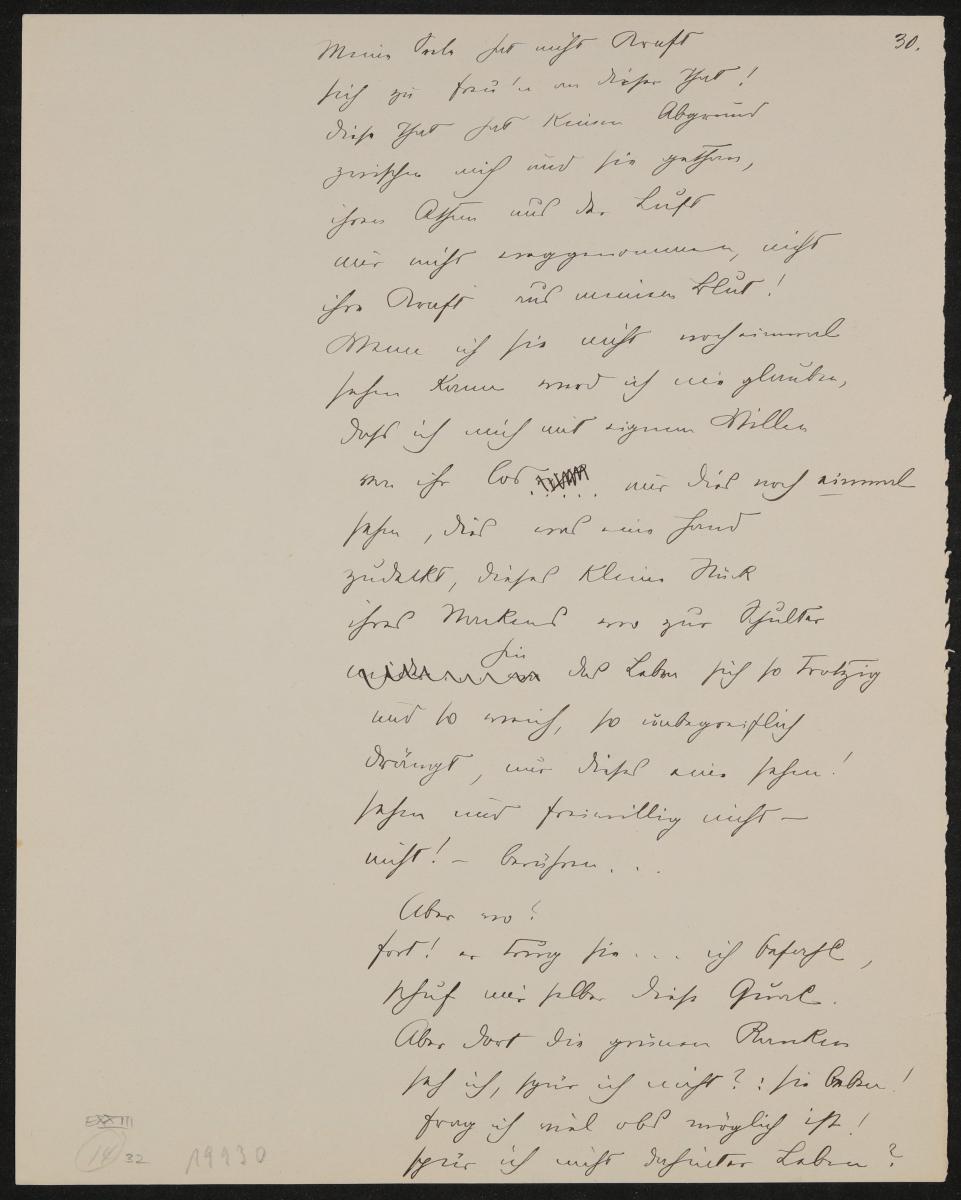 30.
Meine Seele hat nicht Kraft
sich zu freu'n an dieser That!
diese That hat keinen Abgrund
zwischen mich und sie gethan,
ihren Athem aus der Luft
mir nicht weggenommen, nicht
ihre Kraft aus meinem Blut!
Wenn ich sie nicht noch einmal
sehen kann werd ich nie glauben,
dass ich mich mit eignem Willen
von ihr los nur dies noch einmal
sehen, dies was eine Hand
zudeckt, dieses kleine Stück
ihres Nackens wo zur Schulter
hin
das Leben sich so trotzig
und so weich, so unbegreiflich
drängt, nur dieses eine sehen!
sehen und freiwillig nicht –
nicht! – berühren . . .
Aber wo?
fort! er trug sie . . . ich befahl,
schuf mir selber diese Qual.
Aber dort die grünen Ranken
seh ich, spür ich nicht? : sie beben!
frag ich viel obs möglich ist!
spür ich nicht dahinter Leben?
14 32 19930